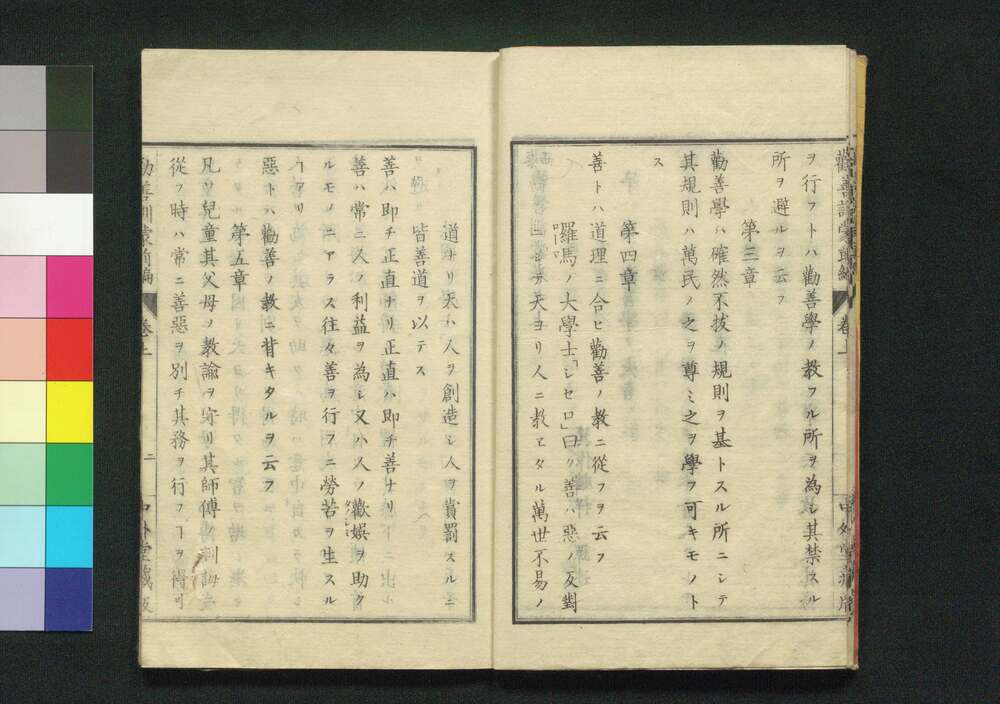 勸善訓蒙前編
卷上
中外堂藏版
ヲ行フトハ勸善學ノ教フル所ヲ為シ其禁スル
所ヲ避ルヲ云フ
第三章
勸善學ハ確然不拔ノ規則ヲ基トスル所ニシテ
其規則ハ萬民ノ之ヲ尊ミ之ヲ學フ可キモノト
ス
第四章
善トハ道理ニ合ヒ勸善ノ教ニ從フヲ云フ
羅馬ノ大學士「シセロ」曰ク善ハ惡ノ反對
ニシテ天ヨリ人ニ教ヱタル萬世不易ノ
道ナリ天ハ人ヲ創造シ人ヲ賞罰スルニ
皆善道ヲ以テス
善ハ即チ正直ナリ正直ハ即チ善ナリ
善ハ常ニ人ノ利益ヲ為シ又ハ人ノ歡娯ヲ助ク
ルモノニアラス往々善ヲ行フニ勞苦ヲ生スル
ヿアリ
惡トハ勸善ノ教ニ背キタルヲ云フ
第五章
凡ソ兒童其父母ノ教諭ヲ守リ其師傅ノ訓誨ニ
從フ時ハ常ニ善惡ヲ別チ其務ヲ行フヿヲ得可
勸善訓蒙前編
卷上
二
中外堂藏版